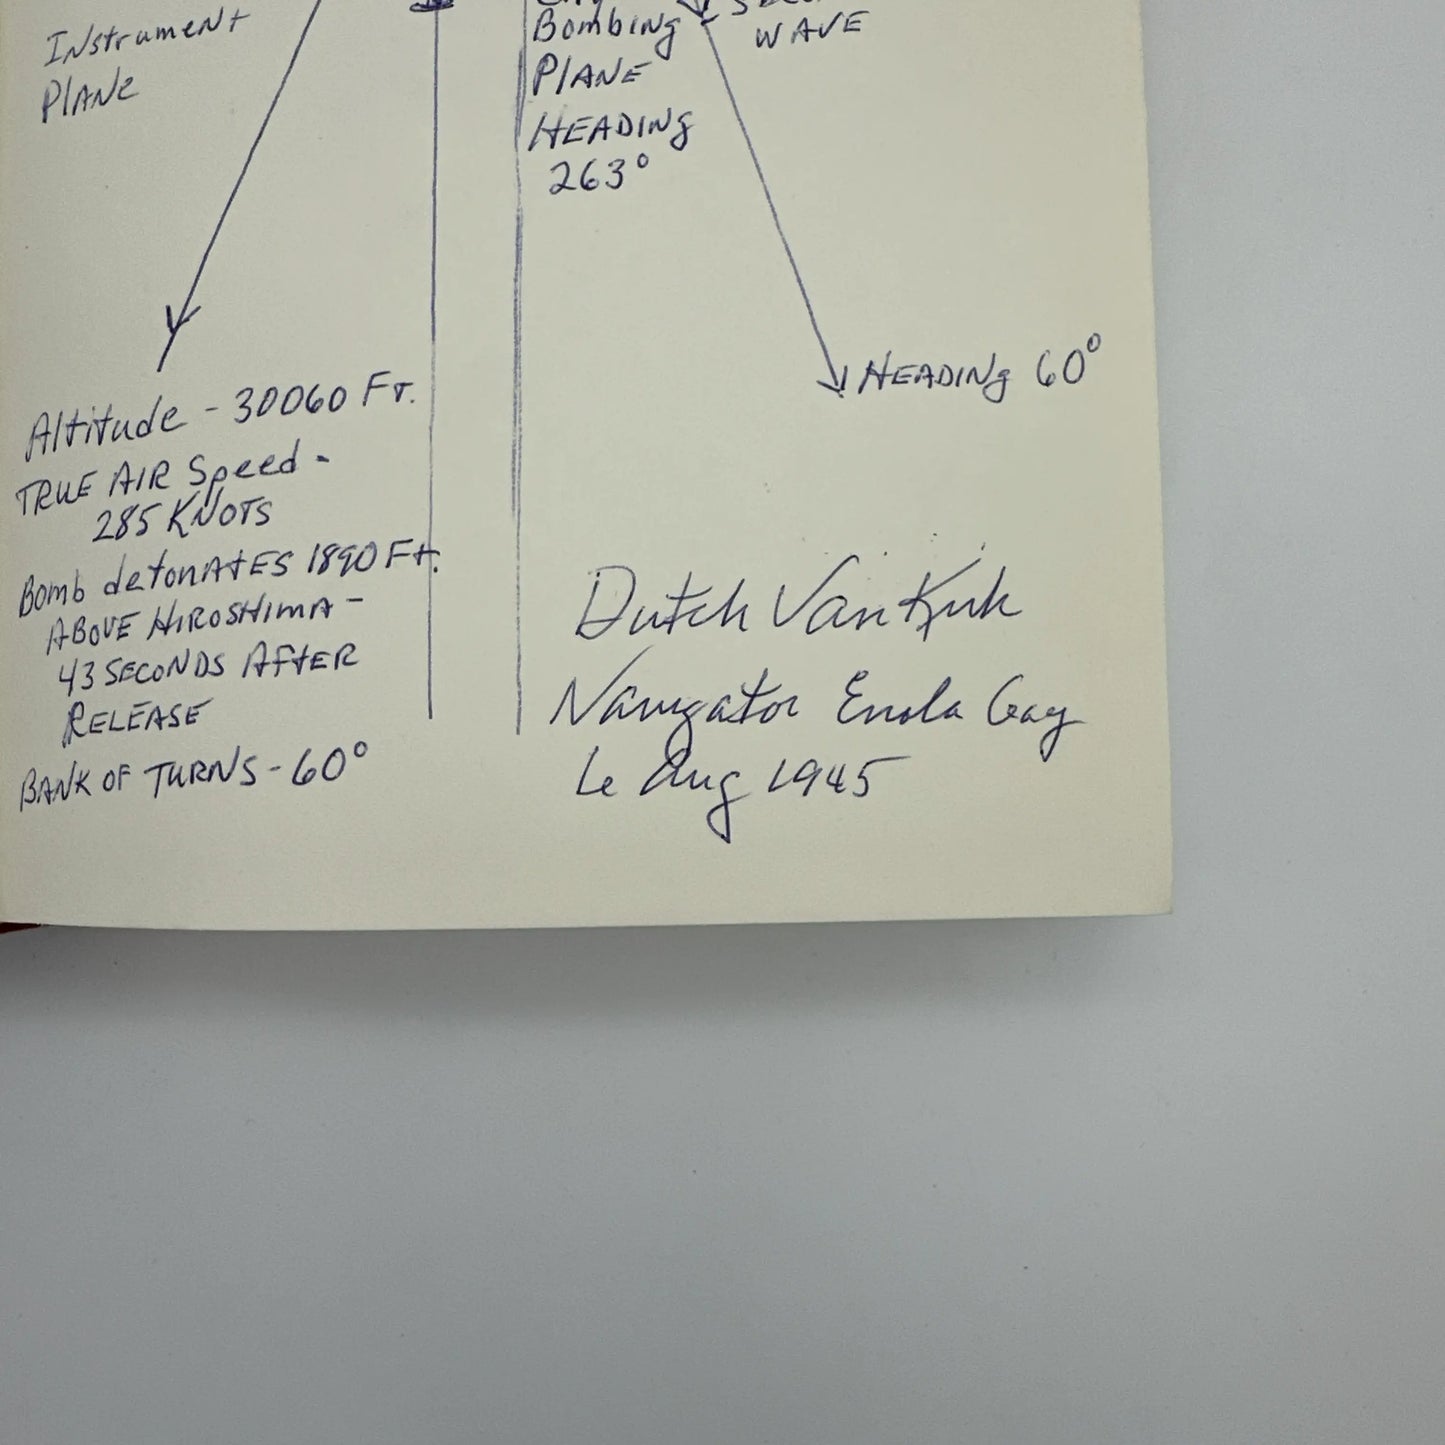 Instrument
PLANE
Bombing
PLANE
HEADING
263°
WAVE
HEADING 60°
Altitude - 30060 FT.
TRUE AIR Speed -
285 KNOTS
Bomb detonATES 1890 Ft.
ABOVE HIROSHIMA -
43 SECONDS AFTER
RELEASE
BANK OF TURNS - 60°
Dutch VanKirk
Navigator Enola Gay
6 Aug 1945